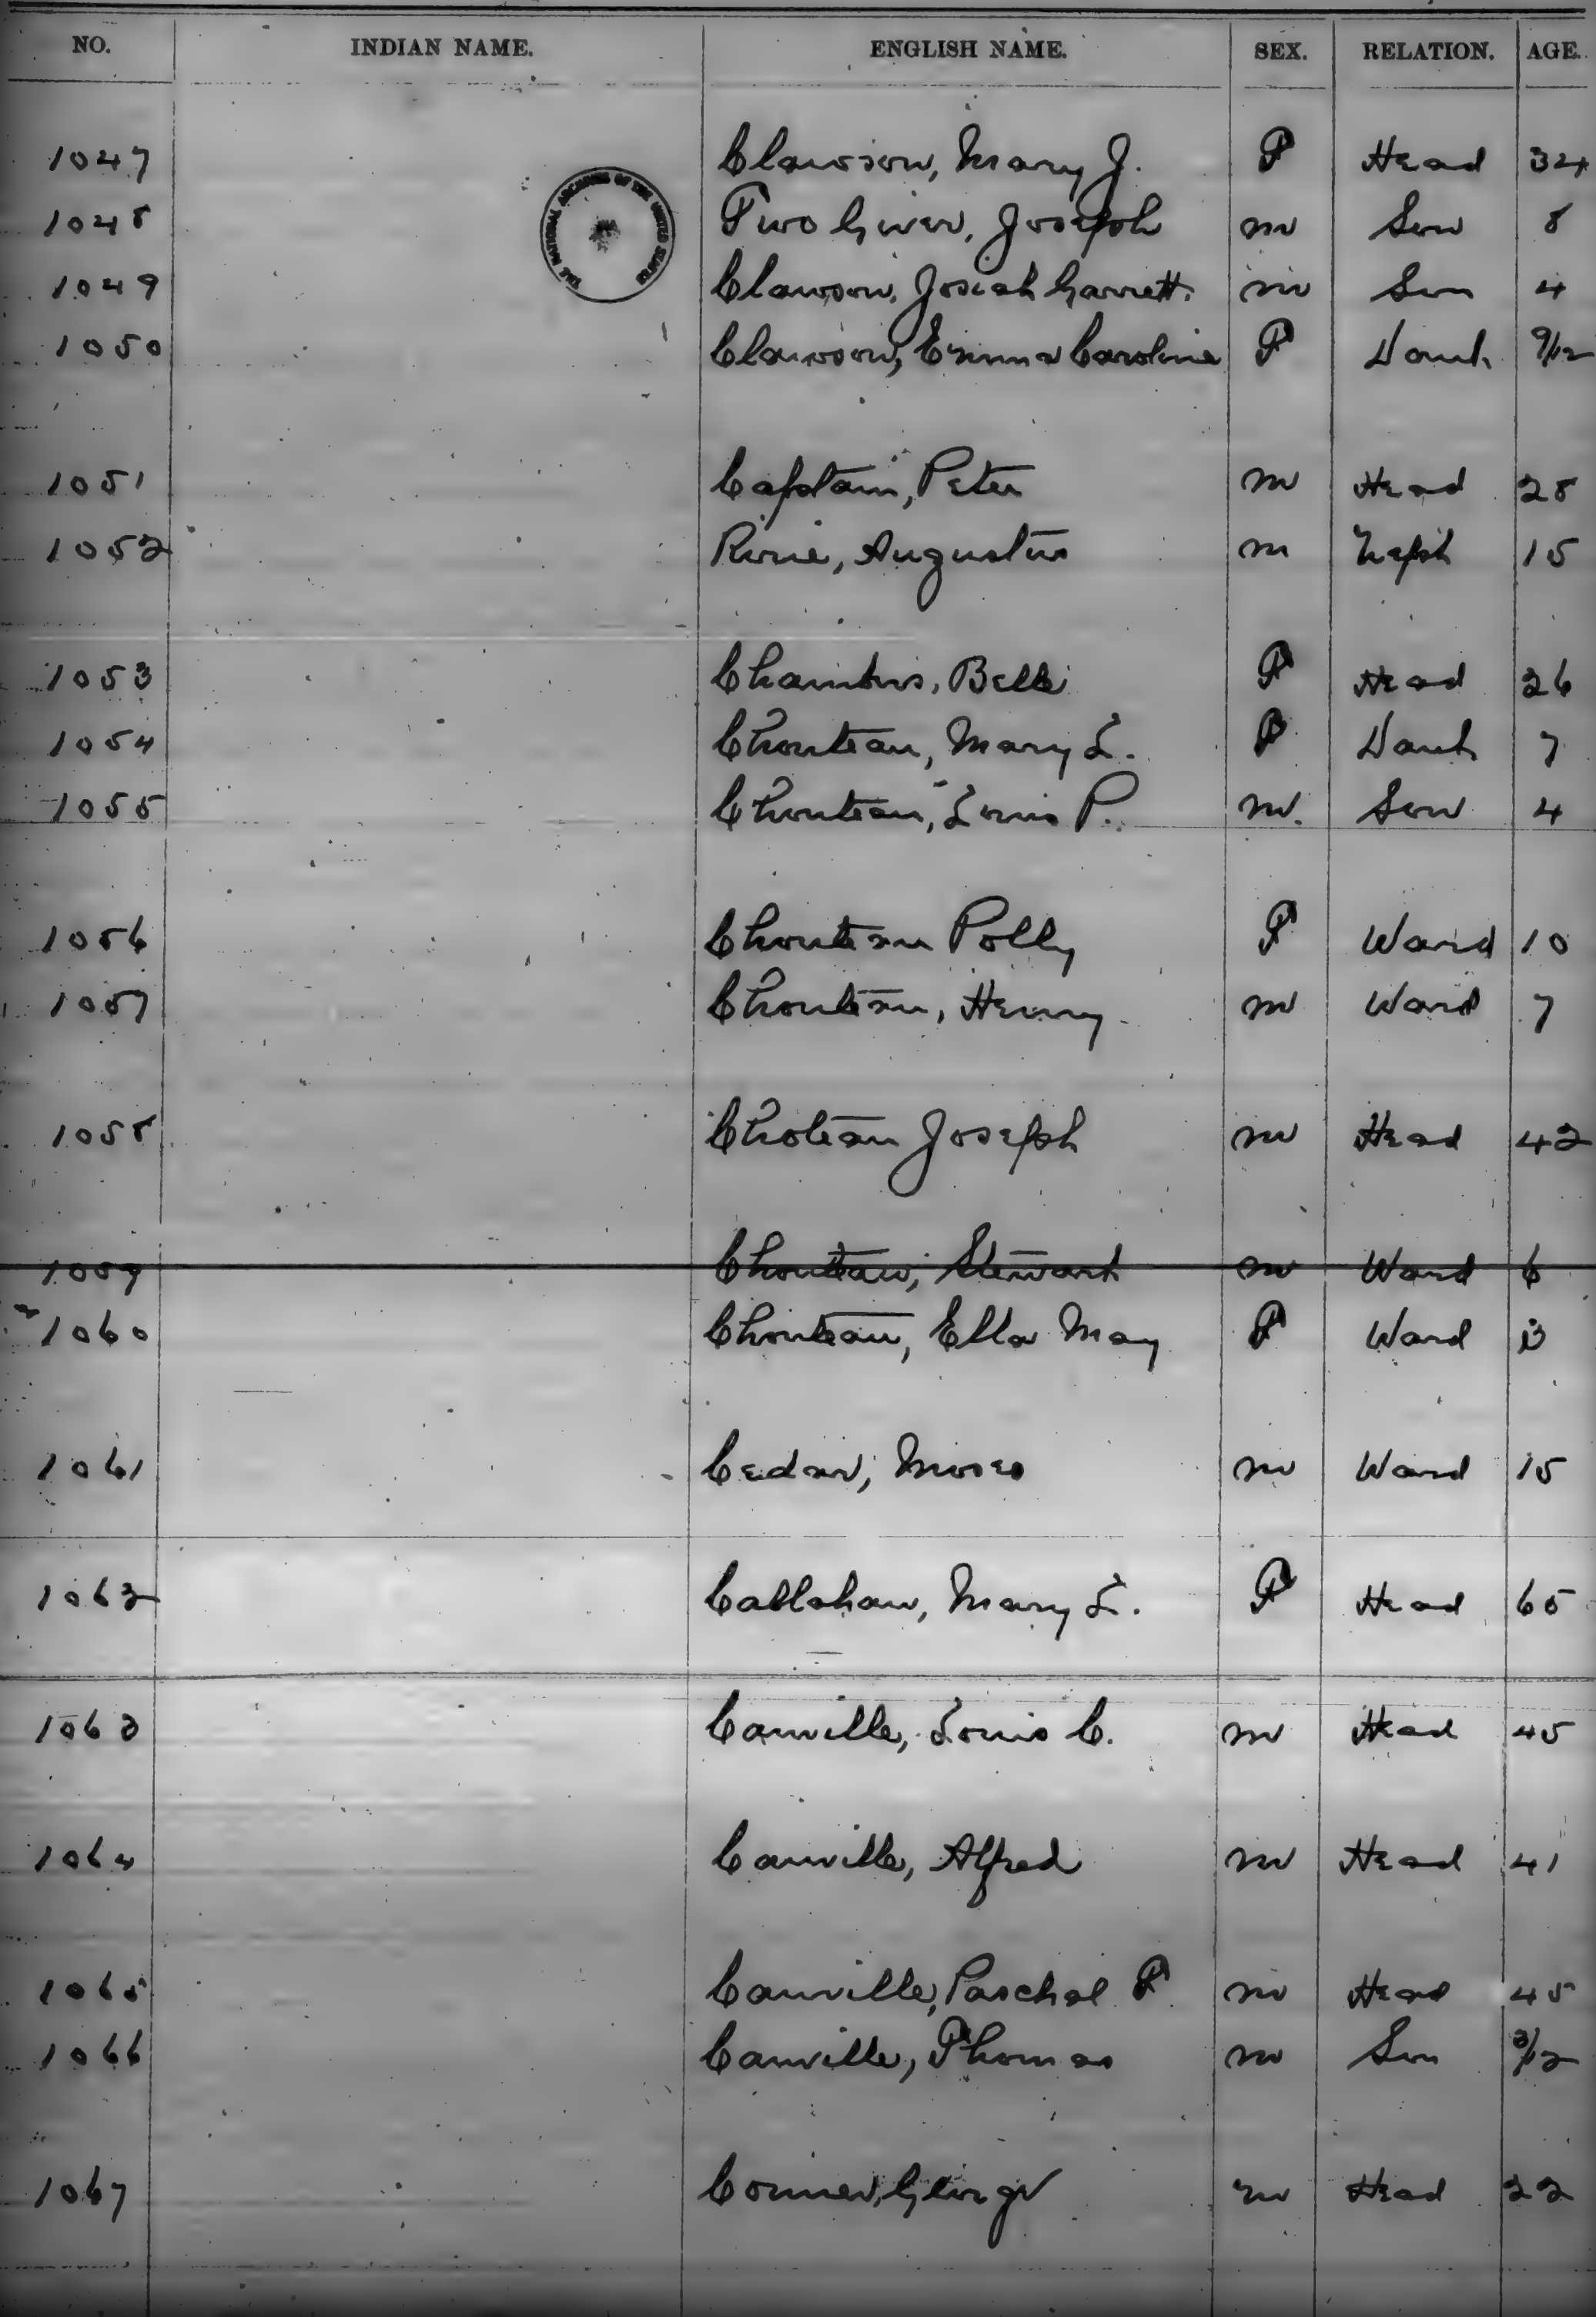 NO. INDIAN NAME. ENGLISH NAME. SEX. RELATION. AGE.
1047 Clawson, Mary J. F Head 34
THE NATIONAL ARCHIVES OF THE UNITED STATES
1048 Two Giver, Joseph M Son 8
1049 Clawson, Josiah Garrett. M Son 4
1050 Clawson, Emma Caroline F Dauh 9/12
1051 Captain, Peter M Head 28
1052 Augustus M Neph 15
1053 Chambers, Belle F Head 26
1054 Chouteau, Mary L. F Dauh 7
1055 Chouteau, Louis P. M. Son 4
1056 Chouteau Polly F Ward 10
1057 Chouteau, Henry M Ward 7
1058 Choteau Joseph M Head 42
1059 Chouteau, Stewart M Ward 6
1060 Chouteau, Ella May F Ward
1061 Cedar, Moses M Ward 15
1062 Callahan, Mary L. F Head 65
1063 Canville, Louis C. M Head 45
1064 Canville, Alfred M Head 41
1065 Canville, Paschal F. M Head 45
1066 Canville, Thomas M Son 3/12
1067 Conner, George M Head 22